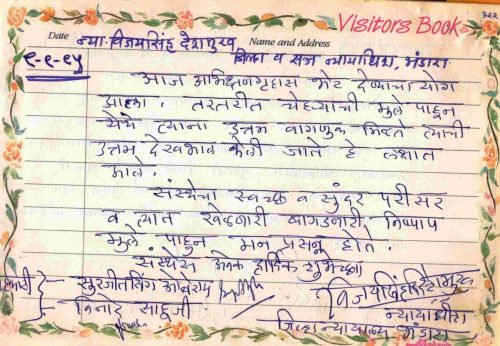 Visitors Book
Date न्या. विजयसिंह देशमुख, Name and Address
९-९-९५ जिल्हा व सत्र न्यायाधिश, भंडारा
आज अभिक्षणगृहास भेट देण्याचा योग
आला. तरतरीत चेहऱ्याची मुले पाहून
येथे त्याना उत्तम वागणुक मिळते त्यांची
उत्तम देखभाल केली जाते हे लक्षात
आले.
संस्थेचा स्वच्छ व सुंदर परीसर
व त्यात खेळणारी बागडणारी निष्पाप
मुले पाहून मन प्रसन्न होते.
संस्थेस अनेक हार्दिक शुभेच्छा
सुरजीतसिंग
विनोद साहूजी
विजयसिंह देशमुख
न्यायाधीश
जिल्हा न्यायालय भंडारा